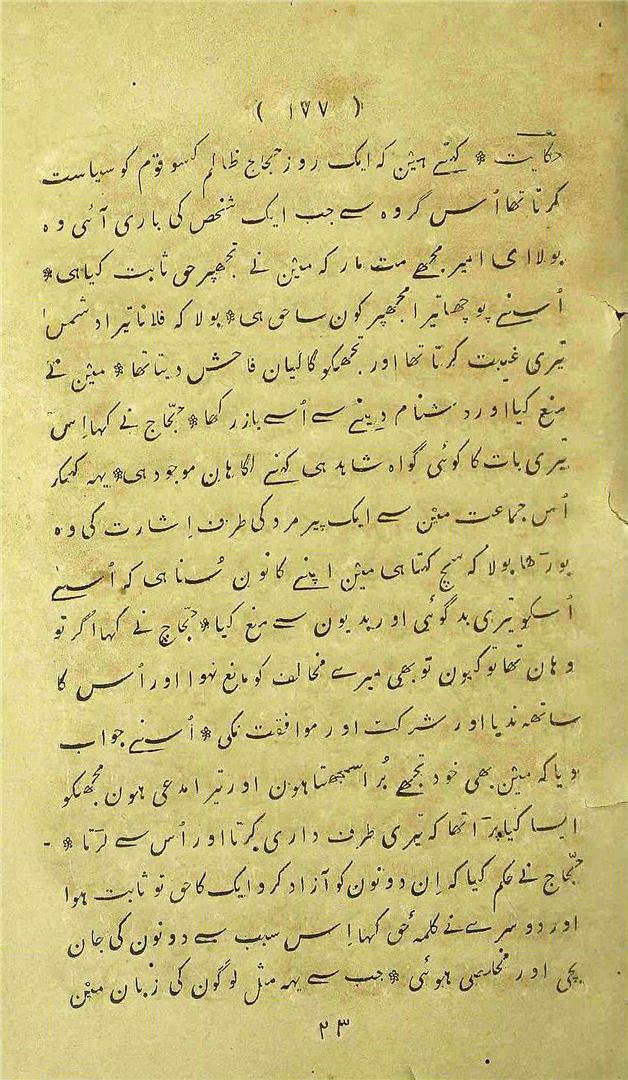 ( ۱۷۷ )
حکایت * کہتے ہین کہ ایک روز حجاج ظالم کسو قوم کو سیاست
کرتا تھا اُس گروہ سے جب ایک شخص کی باری آئی وہ
بولا ای امیر مجھے مت مار کہ میٖن نے تجھپر حق ثابت کیا ہی *
اُسنے پوچھا تیرا مجھپر کون سا حق ہی * بولا کہ فلانا تیرا دشمن
تیری غیبت کرتا تھا اور تجھکو گالیان فاحش دیتا تھا * میٖن نے
منع کیا اور دشنام دینے سے اُسے باز رکھا * حجّاج نے کہا اِس
تیری بات کا کوئی گواہ شاہد ہی کہنے لگا ہان موجود ہی * یہہ کہکر
اُس جماعت میٖن سے ایک پیر مرد کی طرف اِشارت کی وہ
بورھا بولا کہ سچ کہتا ہی میٖن اپنے کانون سُنا ہی کہ اُسنے
اُسکو تیری بد گوئی اور بدیون سے منع کیا * حجّاج نے کہا اگر تو
وہان تھا تو کیون تو بھی میرے مخالف کو مانع نہوا اور اُس کا
ساتھہ ندیا اور شرکت اور موافقت نکی * اُسنے جواب
دیا کہ میٖن بھی خود تجھے بُرا سمجھتا ہون اور تیرا مدعی ہون مجھکو
ایسا کیا پرَا تھا کہ تیری طرف داری کرتا اور اُس سے لرَتا *
حجّاج نے حکم کیا کہ اِن دونون کو آزاد کرو ایک کا حق تو ثابت ہوا
اور دوسرے نے کلمۂ حق کہا اِس سبب سے دونون کی جان
بچی اور مخلصی ہوئی * جب سے یہہ مثل لوگون کی زبان میٖن
۲۳